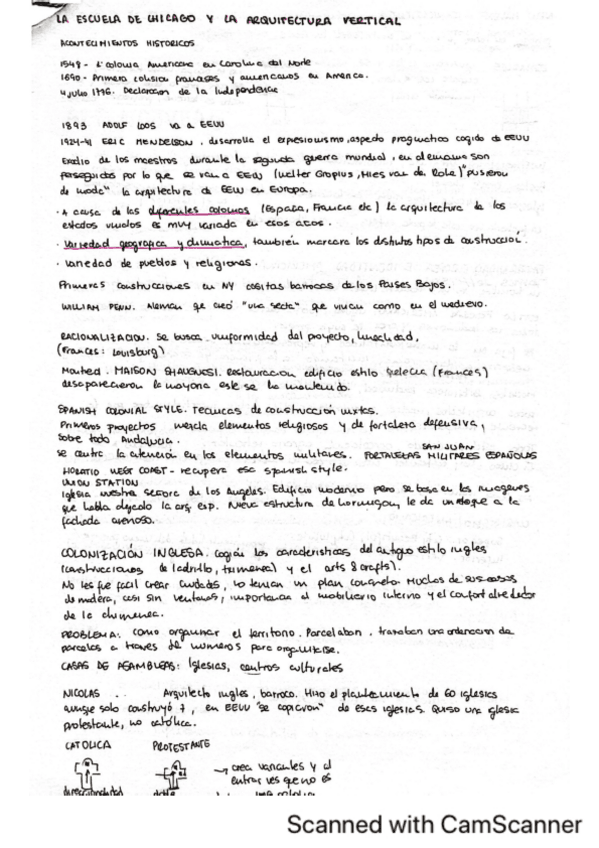 LA ESCUELA DE CHICAGO Y LA ARQUITECTURA VERTICAL
ACONTECIMIENTOS HISTORICOS
1548 - 1ª colonia Americana en Carolina del Norte
1690 - Primera colision franceses y americanos en America.
4 julio 1776. Declaracion de la Independencia
1893 ADOLF LOOS va a EEUU
1924-41 ERIC MENDELSON. desarrolla el expresionismo, aspecto pragmatico cogido de EEUU
Exodio de los maestros durante la segunda guerra mundial, en alemania son
perseguidos por lo que se van a EEUU (Walter Gropius, Mies van de Role) "pusieron
de moda" la arquitectura de EEUU en Europa.
· A causa de las diferentes colonias (España, Francia etc) la arquitectura de los
estados unidos es muy variada en esos años.
· Variedad geografica y climatica, también marcara los distintos tipos de construcción.
· Variedad de pueblos y religiones.
Primeras construcciones en NY casitas barrocas de los Paises Bajos.
WILLIAM PENN. Aleman qe creó "una secta" qe vivian como en el medievo.
RACIONALIZACION. Se busca uniformidad del proyecto, linealidad,
(Frances: Louisburg)
MAISON SHAUGNESI. Restauracion edificio estilo (Frances)
desaparecieron la mayoria este se ha mantenido.
SPANISH COLONIAL STYLE. Tecnicas de construcción mixtas.
Primeros proyectos mezcla elementos religiosos y de fortaleza defensiva,
sobre todo Andalucia.
SAN JUAN
se centra la atención en los elementos militares. FORTALEZAS MILITARES ESPAÑOLAS
HORATIO WEST COAST - recupera ese spanish style.
UNION STATION
Iglesia nuestra señora de los Angeles. Edificio moderno pero se basa en las imagenes
que habia dejado la arq. esp. Nueva estructura de hormigon, le da un toque a la
fachada arenoso.
COLONIZACIÓN INGLESA. Cogían las caracteristicas del antiguo estilo ingles
(construcciones de ladrillo, chimenea) y el arts & crafts).
No les fue facil crear ciudades, no tenian un plan concreto. Muchas de sus casas
de madera, casi sin ventanas, importancia al mobiliario interno y el confort alrededor
de la chimenea.
PROBLEMA: como organizar el territorio. Parcelaban. trazaban una ordenacion de
parcelas a traves de numeros para organizarse.
CASAS DE ASAMBLEAS: Iglesias, centros culturales
NICOLAS .. Arquitecto ingles, barroco. Hizo el planteamiento de 60 iglesias
aunque solo construyó 7, en EEUU "se copiaron" de esas iglesias. Quiso una iglesia
protestante, no católica.
CATOLICA PROTESTANTE
→ crea variantes y al
entrar ves que no es
direccionalidad
Scanned with CamScanner